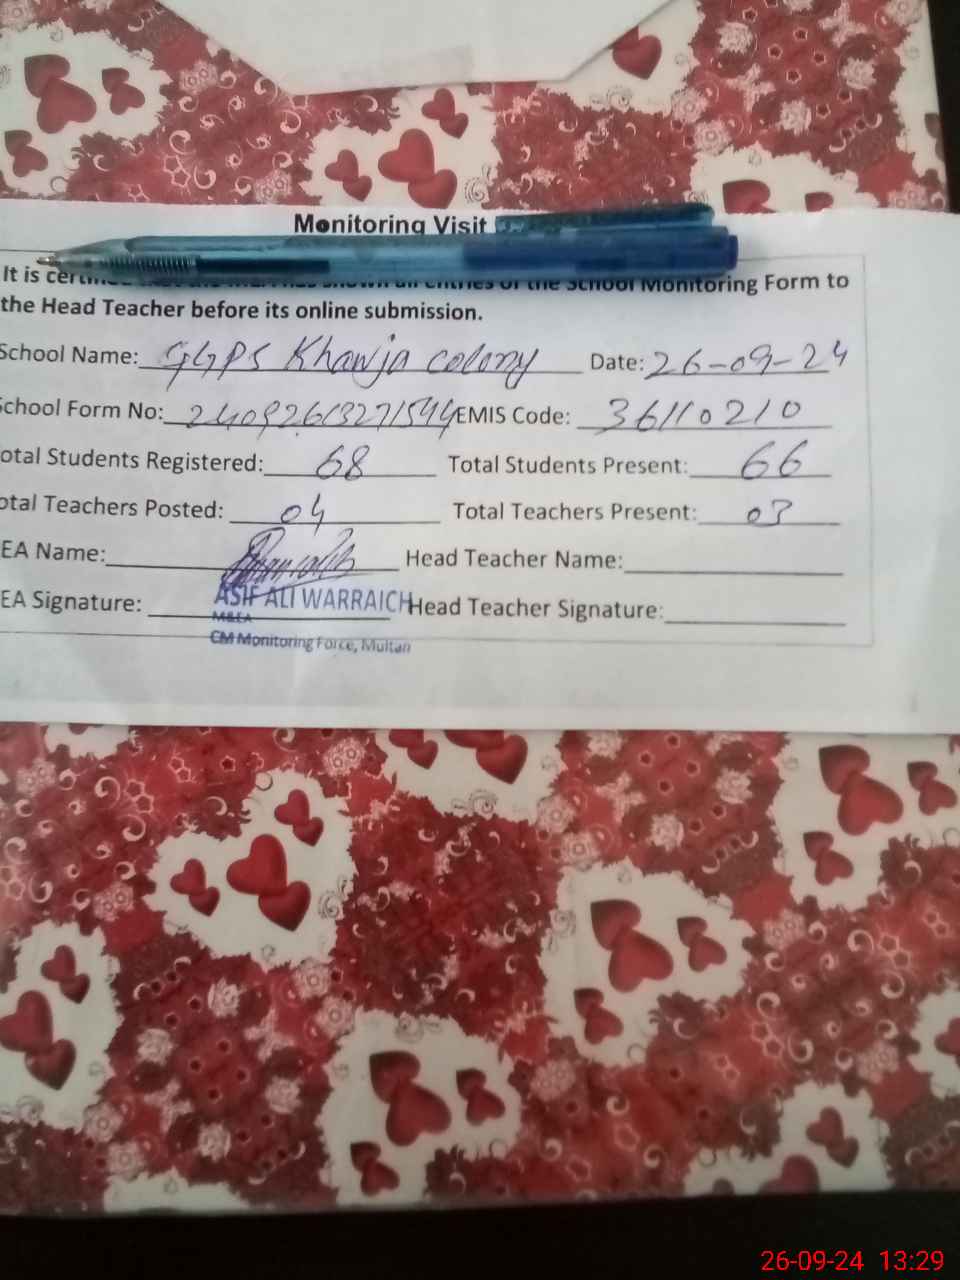 Monitoring Visit
It is that the has shown all entries of the School Monitoring Form to
the Head Teacher before its online submission.
School Name: GGPS Khawja colony Date: 26-09-24
School Form No: 24092613271544 EMIS Code: 36110210
otal Students Registered: 68 Total Students Present: 66
otal Teachers Posted: 04 Total Teachers Present: 03
EA Name: Head Teacher Name:
EA Signature: Head Teacher Signature:
ASIF ALI WARRAICH
M&EA
CM Monitoring Force, Multan
26-09-24 13:29